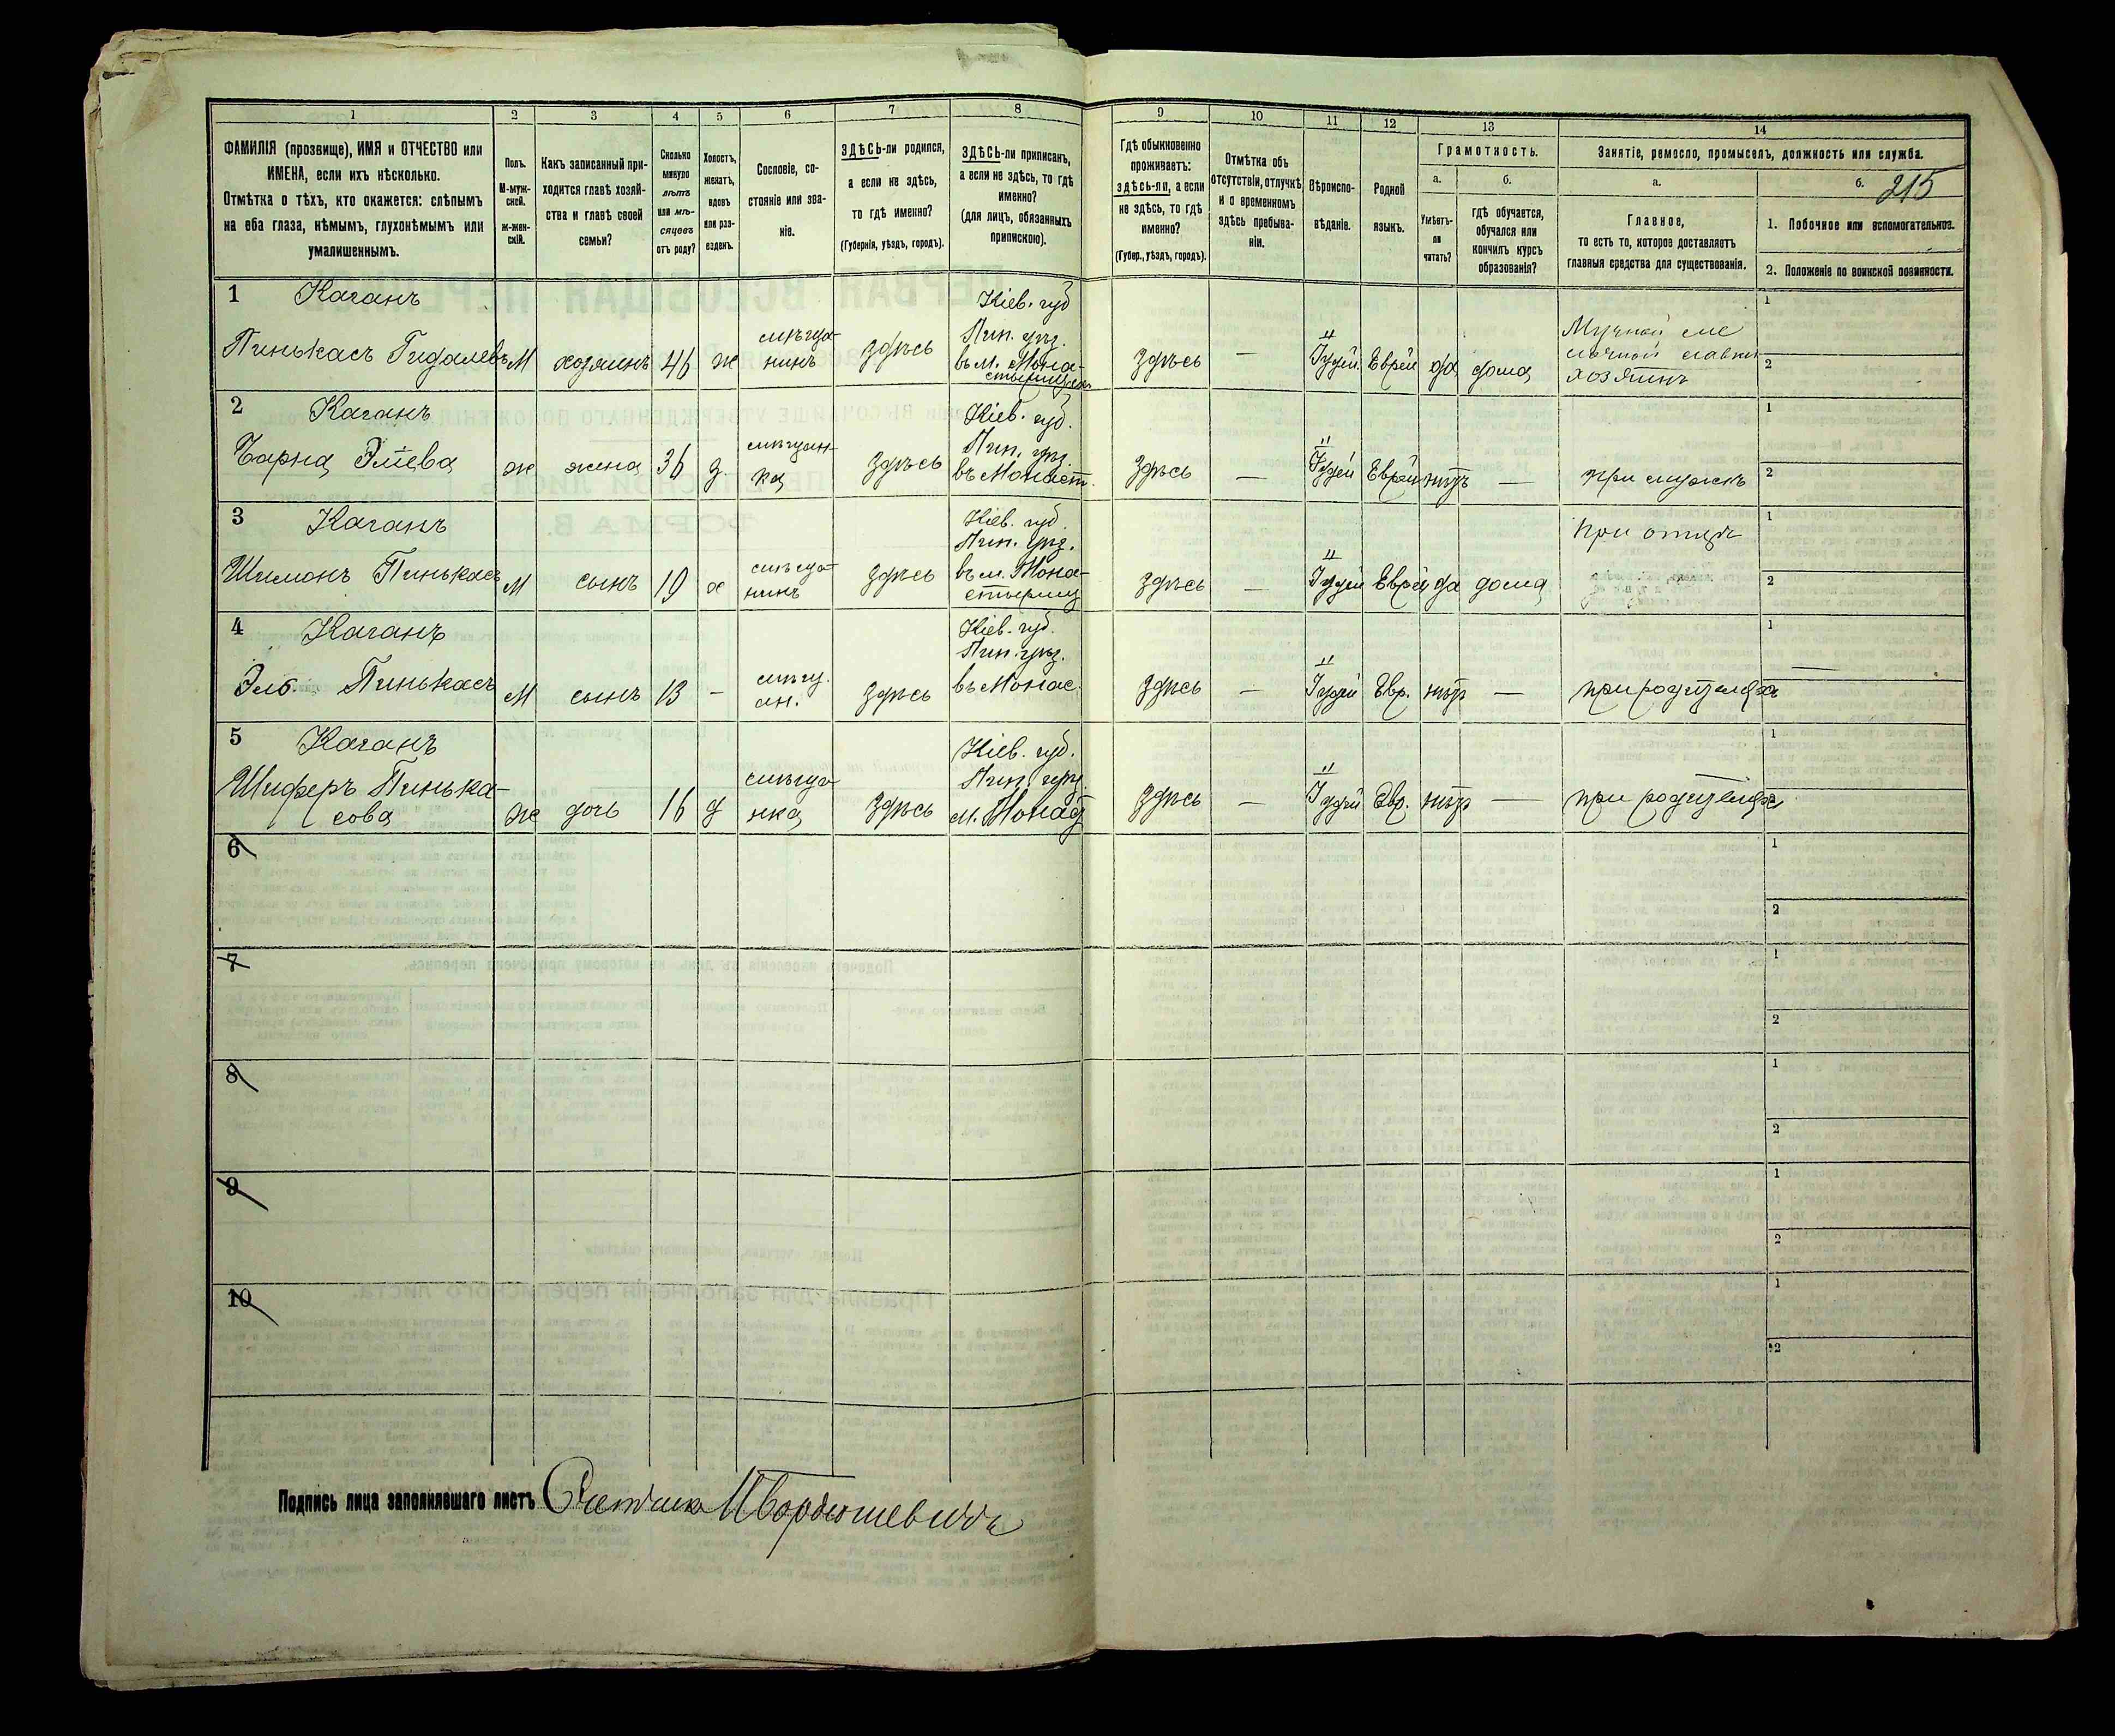 1 2 3 4 5 6 7 8 9 10 11 12 13 14
ФАМИЛІЯ (прозвище), ИМЯ и ОТЧЕСТВО или
ИМЕНА, если ихъ нѣсколько.
Отмѣтка о тѣхъ, кто окажется: слѣпымъ
на оба глаза, нѣмымъ, глухонѣмымъ или
умалишеннымъ.
Полъ.
М-муж-
ской.
ж-жен-
скій.
Какъ записанный при-
ходится главѣ хозяй-
ства и главѣ своей
семьи?
Сколько
минуло
лѣтъ
или мѣ-
сяцевъ
отъ роду?
Холостъ,
женатъ,
вдовъ
или раз-
веденъ.
Сословіе, со-
стояніе или зва-
ніе.
ЗДѢСЬ-ли родился,
а если не здѣсь,
то гдѣ именно?
(Губернія, уѣздъ, городъ).
ЗДѢСЬ-ли приписанъ,
а если не здѣсь, то гдѣ
именно?
(для лицъ, обязанныхъ
припискою).
Гдѣ обыкновенно
проживаетъ:
здѣсь-ли, а если
не здѣсь, то гдѣ
именно?
(Губер., уѣздъ, городъ).
Отмѣтка объ
отсутствіи, отлучкѣ
и о временномъ
здѣсь пребыва-
ніи.
Вѣроиспо-
вѣданіе.
Родной
языкъ.
Грамотность.
а.
Умѣетъ-
ли
читать?
б.
гдѣ обучается,
обучался или
кончилъ курсъ
образованія?
Занятіе, ремесло, промыселъ, должность или служба.
а.
Главное,
то есть то, которое доставляетъ
главныя средства для существованія.
б. 215
1. Побочное или вспомогательное.
2. Положеніе по воинской повинности.
1 Каганъ
Пинькасъ Гидалевъ М хозяинъ 46 ж
мѣща-
нинъ
здѣсь
Кіев. губ
Лип. уѣз.
въ м. Мона-
стырищахъ
здѣсь — Іудей. Еврей да дома
Мучной
лавки
хозяинъ
1
2
2 Каганъ
Чарна Элiева ж жена 36 з.
мѣщан-
ка
здѣсь
Кіев. губ.
Лип. уѣз.
въ Монаст.
здѣсь — Іудей Еврей нѣтъ — при мужѣ
1
2
3 Каганъ
Шимонъ Пинькасъ М сынъ 19 х
мѣща-
нинъ
здѣсь
Кіев. губ.
Лип. уѣз.
въ м. Мона-
стырищ
здѣсь — Іудей Еврей да дома
при отцѣ
1
2
4 Каганъ
Эль. Пинькасъ М сынъ 13 —
мѣщ.
ан.
здѣсь
Кіев. губ.
Лип. уѣз.
въ Монас.
здѣсь — Іудей Евр. нѣтъ — при родителяхъ
1
5 Каганъ
Шиферъ Пинька-
сова
ж дочь 16 д
мѣща-
нка
здѣсь
Кіев. губ.
Лип. уѣз.
м. Монаст
здѣсь — Іудей Евр. нѣтъ — при родителяхъ
1
6
1
2
7
1
2
8
1
2
9
1
2
10
1
2
Подпись лица заполнявшаго листъ